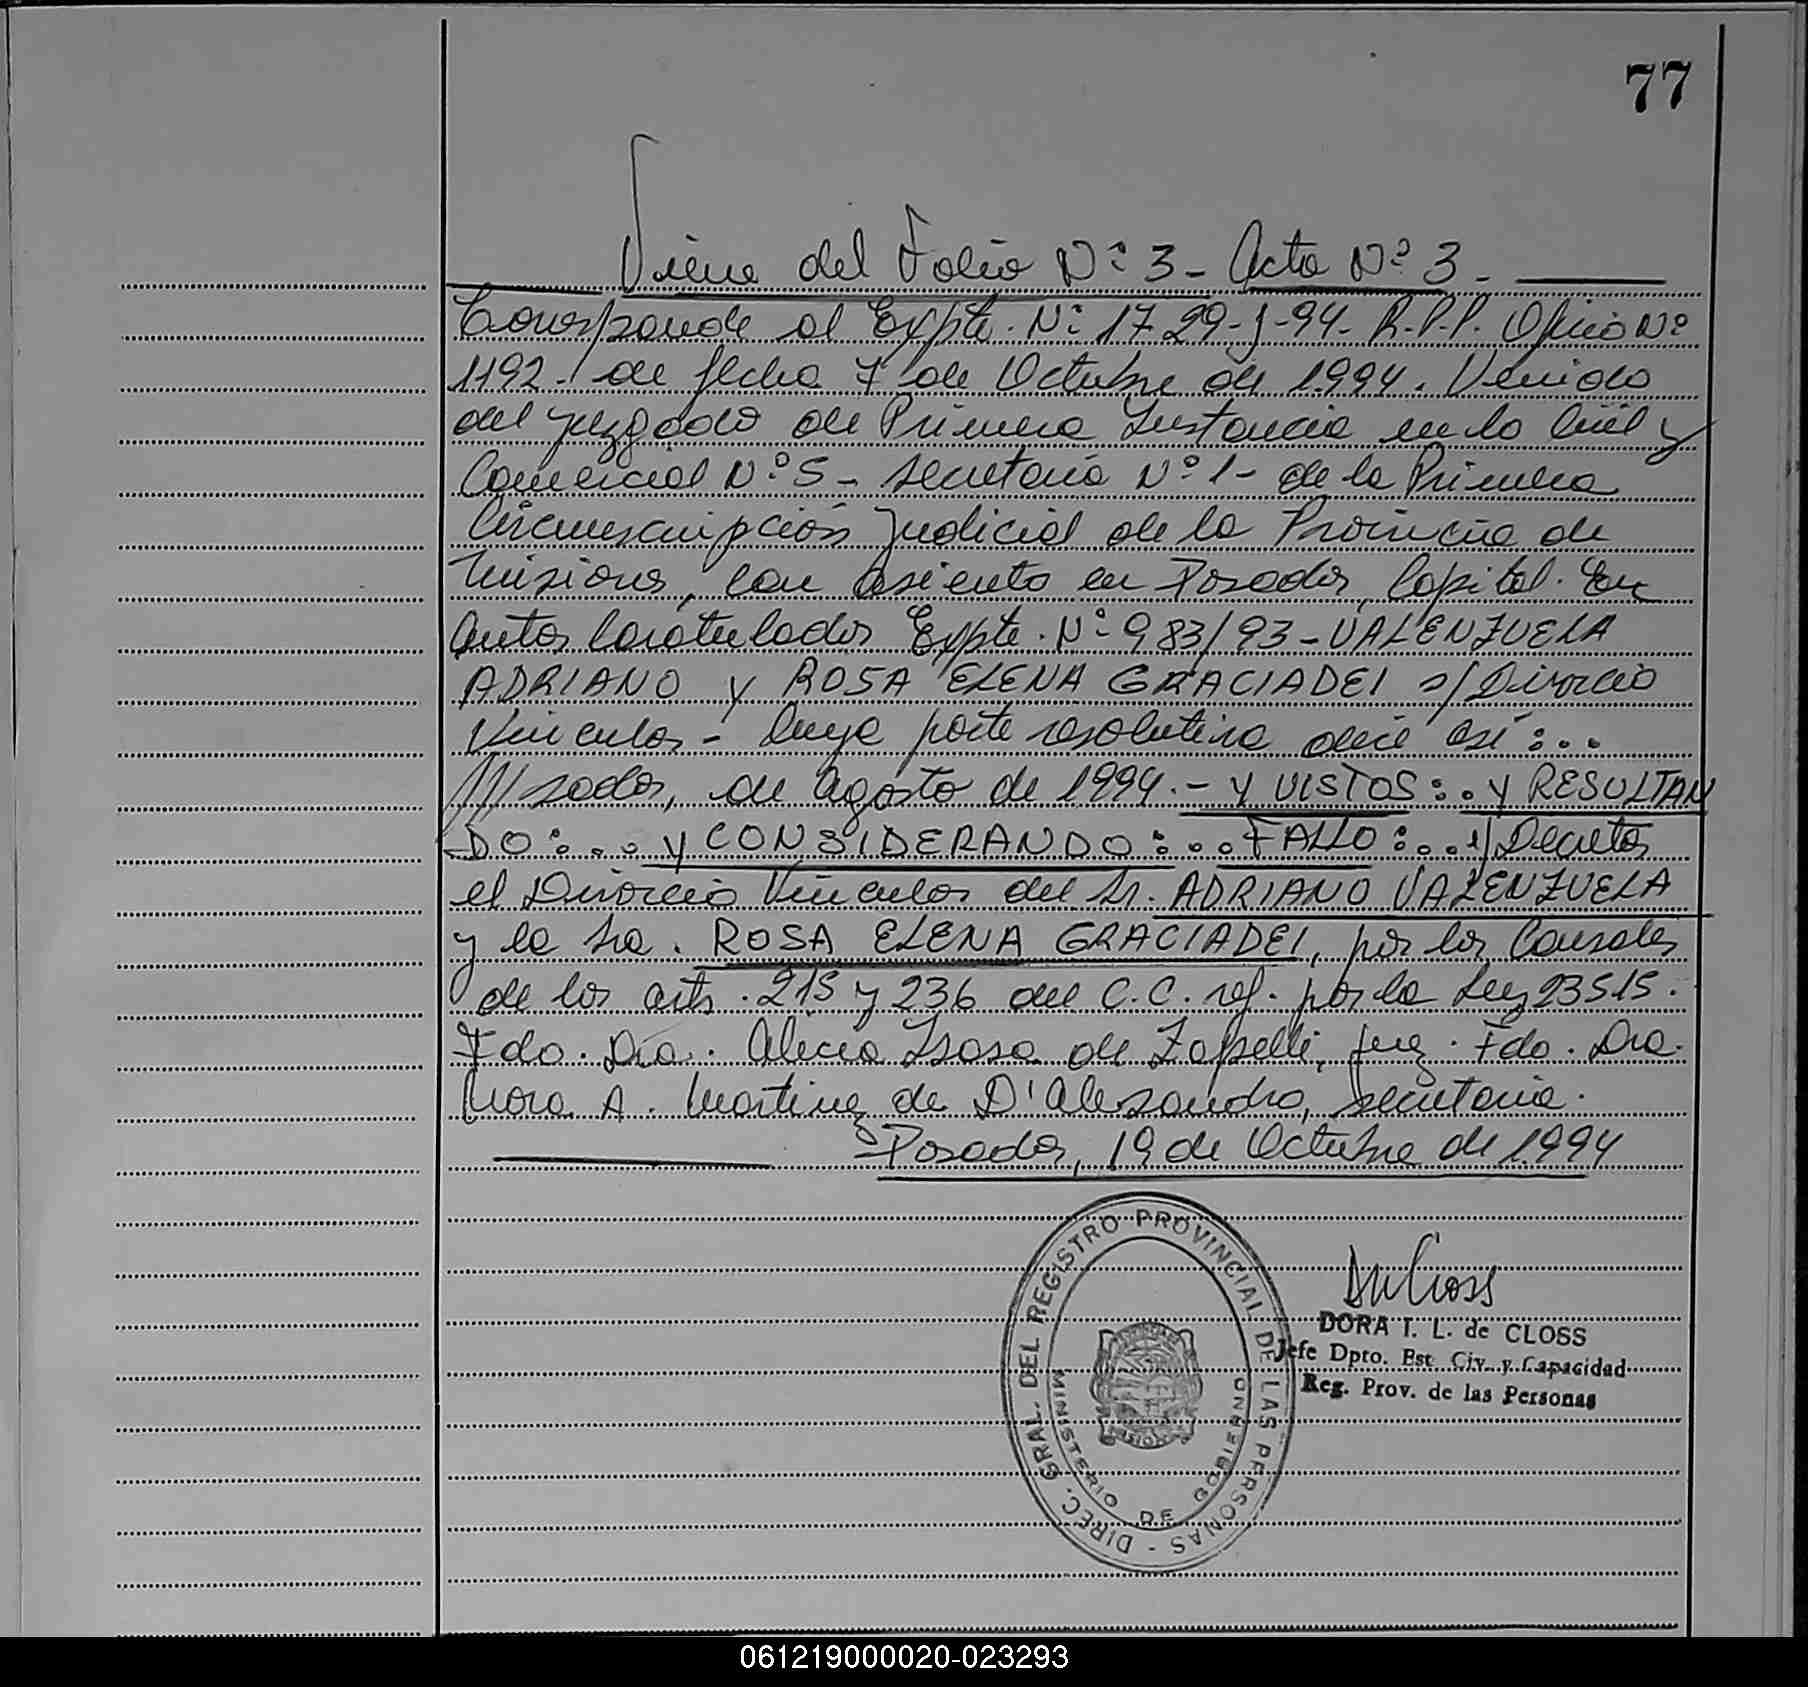 77
Viene del Folio Nº 3 - Acta Nº 3 -
Corresponde al Expte. Nº 1729-J-94- R.P.P. Oficio Nº
1192. de fecha 7 de Octubre de 1.994. Venido
del juzgado de Primera Instancia en lo Civil y
Comercial Nº 5 - Secretaria Nº 1 - de la Primera
Circunscripción Judicial de la Provincia de
Misiones, con asiento en Posadas, Capital. En
autos Caratulados Expte. Nº 983/93 - VALENZUELA
ADRIANO y ROSA ELENA GRACIADEI s/Divorcio
Vincular - Cuya parte resolutiva dice así:...
///sadas, de agosto de 1994.- Y VISTOS:. Y RESULTAN
DO:... Y CONSIDERANDO:... FALLO:... Decretar
el Divorcio Vincular del Sr. ADRIANO VALENZUELA
y la Sra. ROSA ELENA GRACIADEI, por las Causales
de los arts. 215 y 236 del C.C. ref. por la Ley 23515.
Fdo. Dra. Alicia Isasa de Zapelli, Juez. Fdo. Dra.
Nora A. Martinez de D'Alessandro, secretaria.
Posadas, 19 de Octubre de 1.994
DIREC. GRAL. DEL REGISTRO PROVINCIAL DE LAS PERSONAS -
MINISTERIO DE GOBIERNO
MISIONES
DORA I. L. de CLOSS
Jefe Dpto. Est. Civ. y Capacidad
Reg. Prov. de las Personas
061219000020-023293